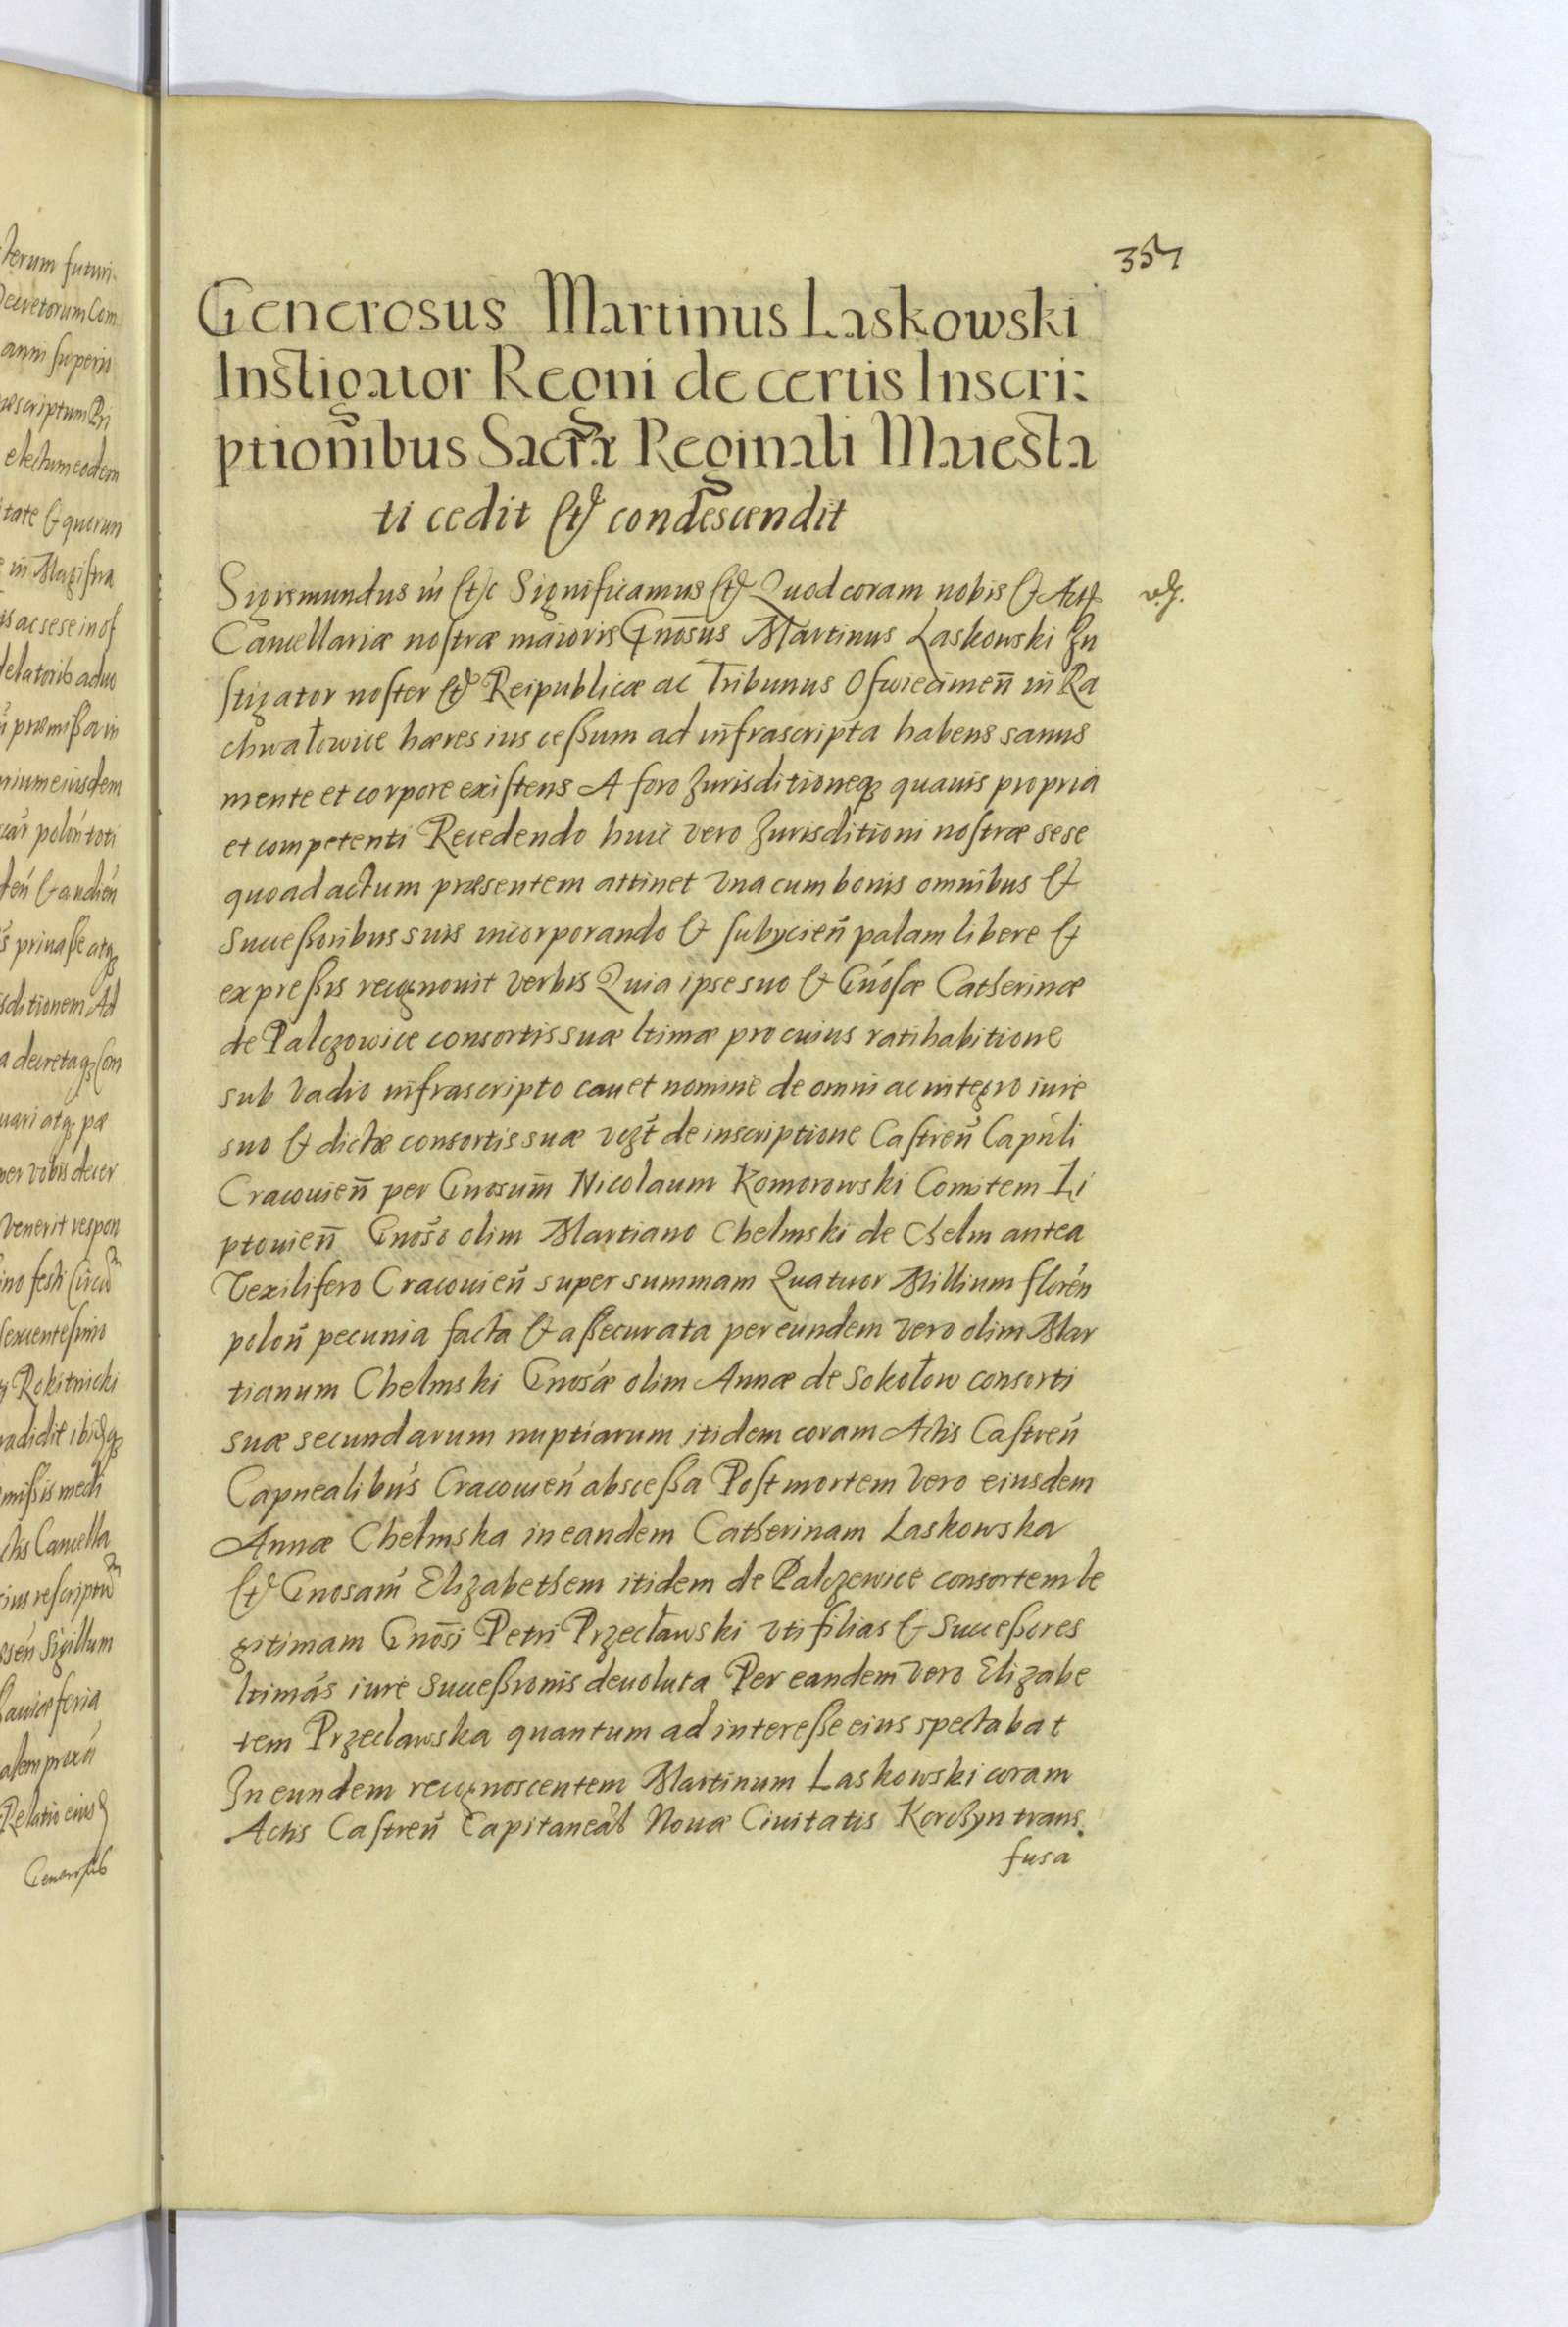 terum futuri-
Decretorum Com
anni superi
scriptum Pri
electum eodem
tate & quorun
in Magistra
is ac sese in of
delatorib aduo
præmissa in
eiusdem
polon toti
ten & audien
s priuasse atq
isditionem Ad
a decretaq Con
uari atq pæ
per vobis decer
venerit respon
ino festi Circu
sexcentesimo
Rokitnicki
radidit ibidq
missis medi
ctis Cancella
ius rescriptu
ssen Sigillum
feria
alem proxn
Relatio eius
357
Generosus Martinus Laskowski
Instigator Regni de certis Inscri:
ptionibus Sacræ Reginali Maiesta
ti cedit et condescendit
Sigismundus iii etc Significamus et Quod coram nobis & Act
Cancellariæ nostræ maioris Gnosus Martinus Laskowski In
stigator noster et Reipublicæ ac Tribunus Oswiecimen in Ra
chwałowice hæres ius cessum ad infrascripta habens sanus
mente et corpore existens A foro Iurisditioneq quauis propria
et competenti Recedendo huic vero Iurisditioni nostræ sese
quoad actum præsentem attinet vna cum bonis omnibus &
Successoribus suis incorporando & subycien palam libere &
expressis recognouit verbis Quia ipse suo & Gnosæ Catherinæ
de Palczowice consortis suæ ltimæ pro cuius ratihabitione
sub vadio infrascripto cauet nomine de omni ac integro iure
suo & dictæ consortis suæ vczt de inscriptione Castren Capnli
Cracouien per Gnosum Nicolaum Komorowski Comitem Li
ptouien Gnoso olim Martiano Chelmski de Chelm antea
Vexilifero Cracouien super summam Quatuor Millium floren
polon pecunia facta & assecurata per eundem vero olim Mar
tianum Chelmski Gnosæ olim Annæ de Sokołow consorti
suæ secundarum nuptiarum itidem coram Actis Castren
Capnealibus Cracouien abscessa Post mortem vero eiusdem
Annæ Chelmska in eandem Catherinam Laskowska
et Gnosam Elizabethem itidem de Palczewice consortem le
gitimam Gnosi Petri Przecławski vti filias & Successores
ltimas iure Successionis deuoluta Per eandem vero Elizabe
tem Przeclawska quantum ad interesse eius spectabat
In eundem recognoscentem Martinum Laskowski coram
Actis Castren Capitaneal Nouæ Ciuitatis Korcssyn trans.
fusa